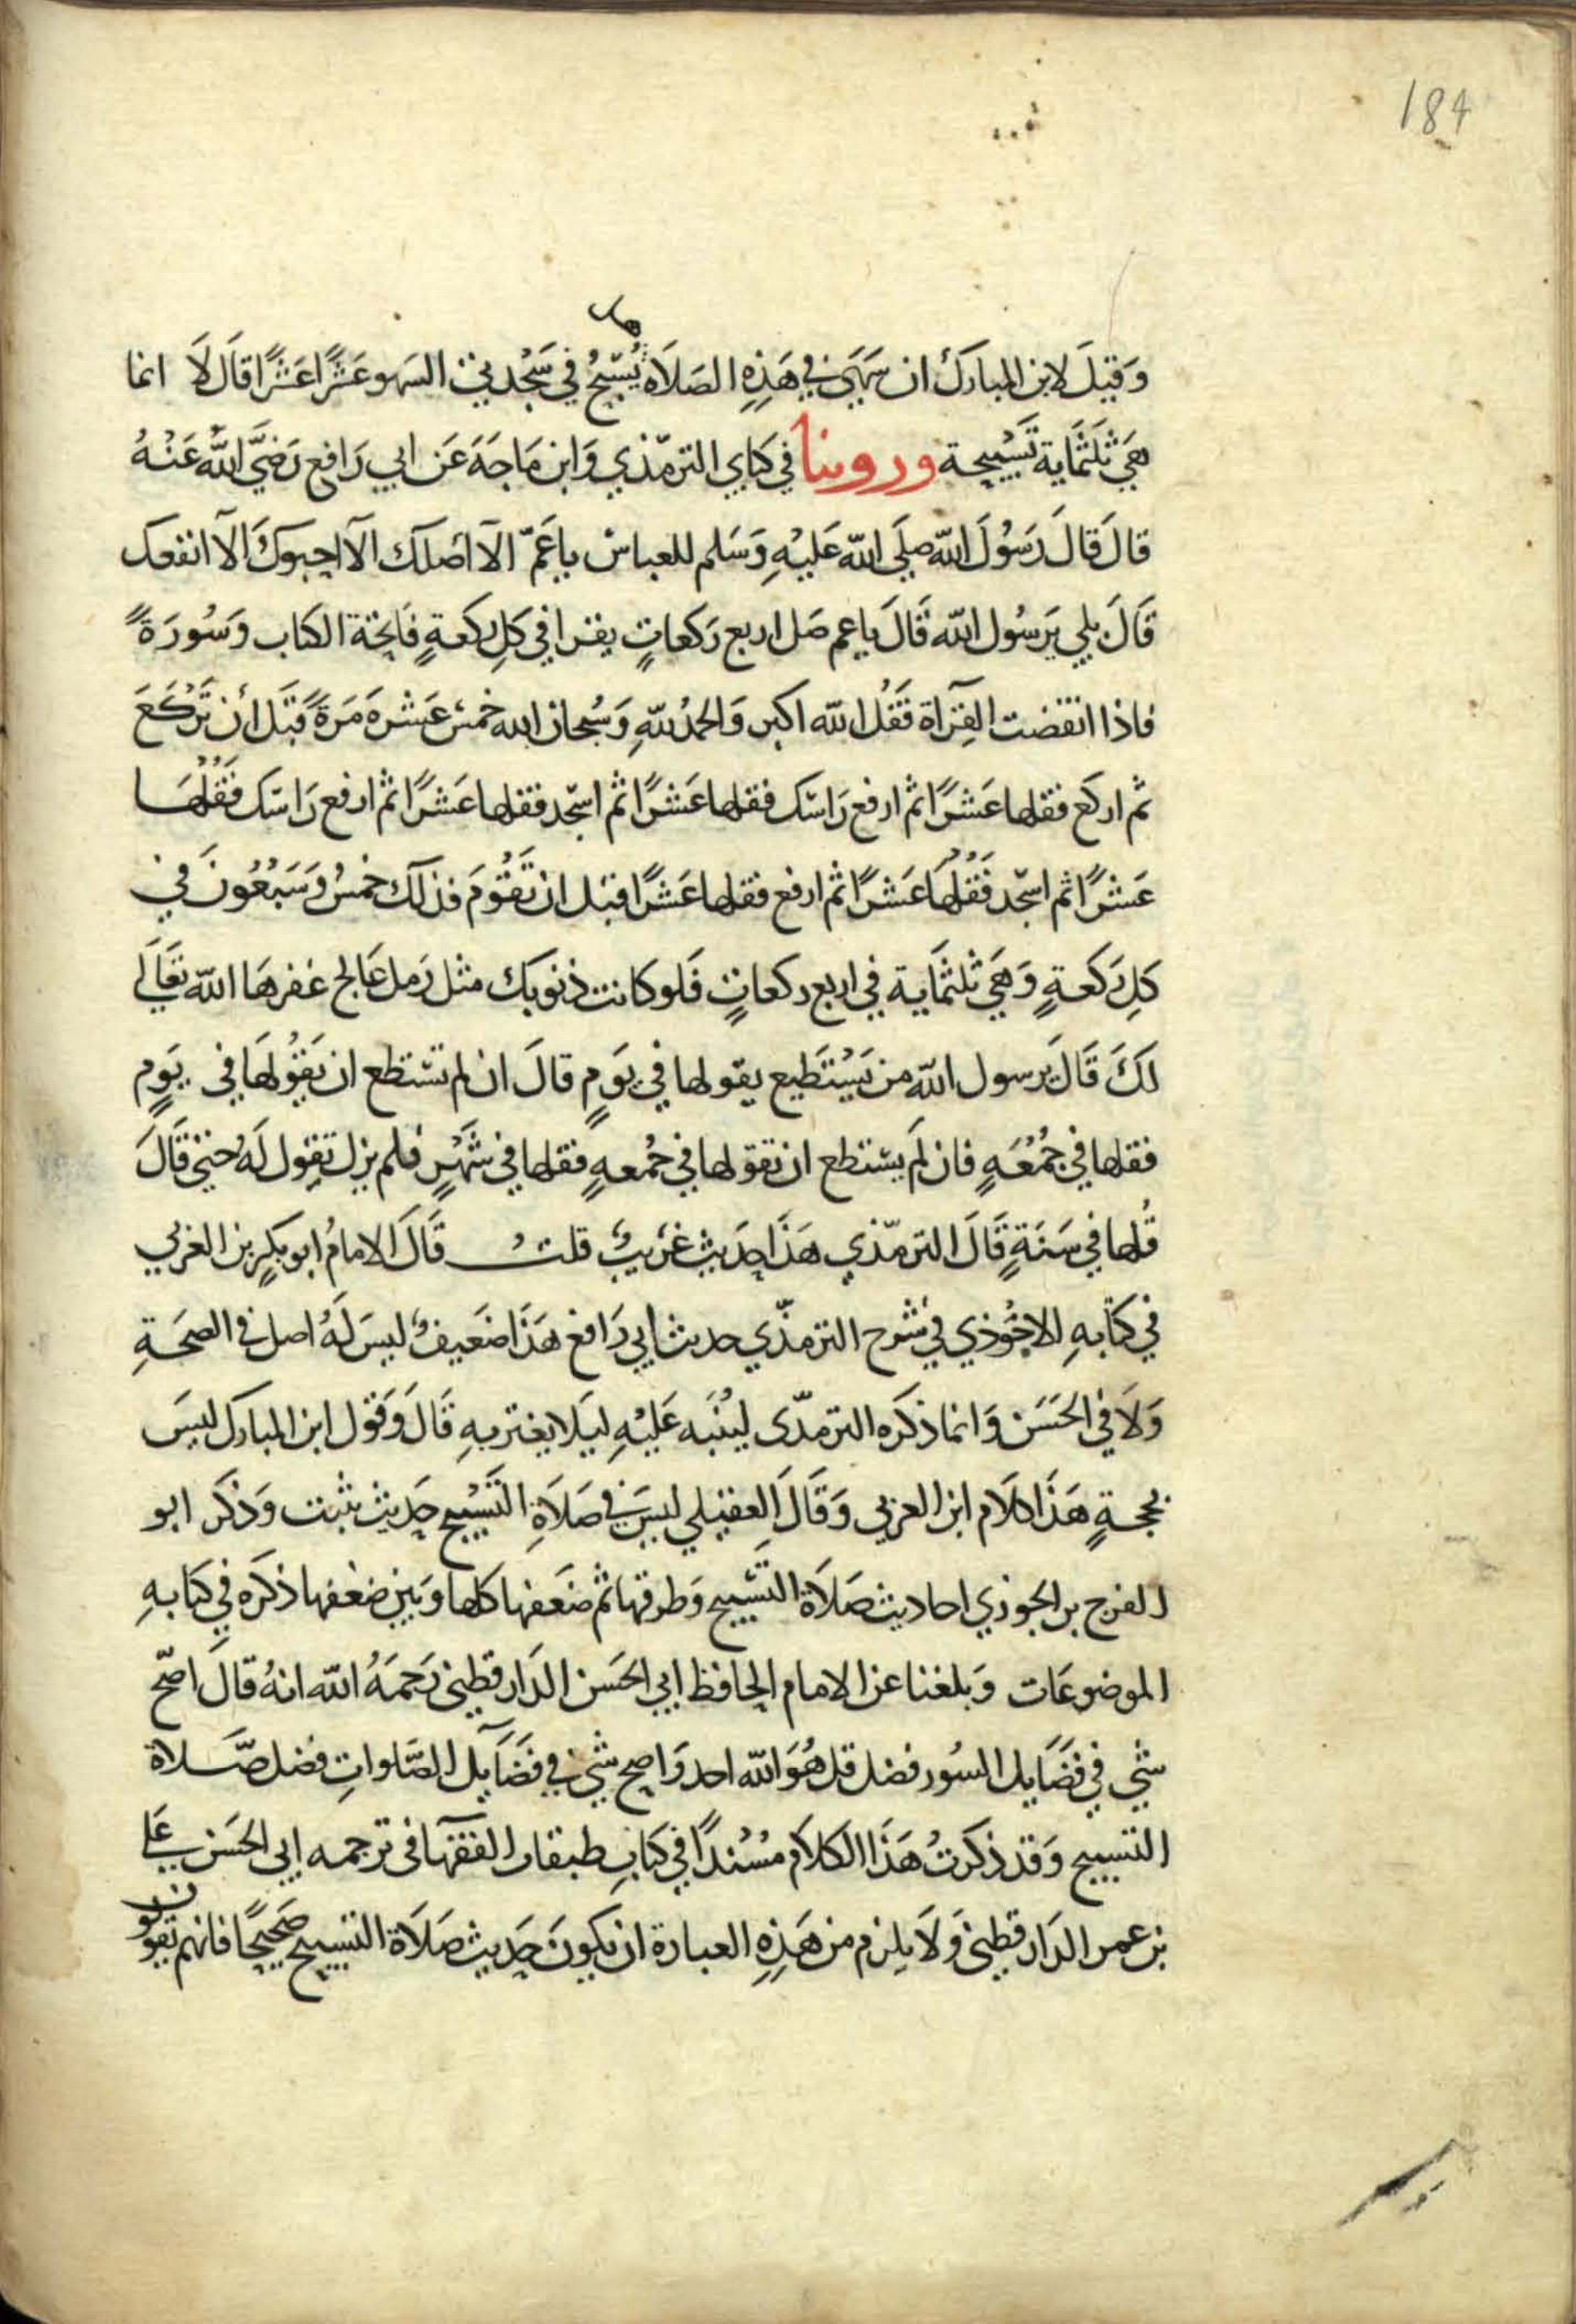 184
هل
وَقيلَ لابن المبارك ان سَهَى في هَذِهِ الصَلَاه يُسَبّحُ في سَجْدتي السَهو عَشْرًا عَشْرًا قَالَ لَا انما
هيَ ثَلَثُمَاية تَسْبِيحة وروينا في كتابي الترمّذي وَابن مَاجَهَ عَن ابي رَافع رَضيَ اللّه عَنْهُ
قالَ قالَ رَسُولَ اللّه صلَي اللّه عَليْهِ وَسَلم للعباس يا عَمّ الَا اصَلك الَا احبوك الَا انفعك
قَالَ بلي يَرسُول اللّه قَالَ يا عم صَل اربع رَكعاتٍ يقرا في كَلِ ركعةٍ فَاتحة الكتاب وَسُورَةً
فاذا انقضت القِرَآة فَقُل اللّه اكبر وَالحمدُ للّهِ وَسُبحان الله خمسَ عَشره مَرةً قبَل أن تَركَعَ
ثم اركع فقلها عَشرًا ثم ارفع رَاسَك فقلها عَشرًا ثم اسجد فقلها عَشرًا ثم ارفع رَاسَك فَقُلْهَا
عَشرًا ثم اسجد فَقُلْهَا عَشرًا ثم ارفع فقلها عَشرًا قبل ان تَقُومَ فذلك خمسُ وَسَبْعُونَ في
كَلِ رَكعةٍ وَهيَ ثلثمَاية في اربع ركعاتٍ فَلو كانت ذنوبك مثل رَمل عَالج غفرهَا اللّه تعَالَي
لكَ قَالَ يَرسول اللّه من يَسْتَطيع يقولها في يَومٍ قالَ ان لم تستطع ان تَقُولهَا في يَومٍ
فقلها في جُمُعَهٍ فان لَم يستطع ان تقولها في جُمعهٍ فقلها في شَهْرٍ فلم يزل تقِول لَهُ حتي قَالَ
قُلها في سَنَةٍ قَالَ الترمّذي هَذَا حَديث غَريبٌ قلت قَالَ الامامُ ابو بكرٍ بن العربي
في كتابهِ الاحوَذي في شرح الترمذّي حديث ابي رَافع هَذَا ضَعيفٌ ليسَ لَهُ اصل في الصحَةِ
وَلَا في الحَسَن وَانما ذكَره الترمذّى ليُنَبه عَليْهِ ليَلا يغتر بهِ قَالَ وَقول ابن المبارك ليسَ
بحجةٍ هَذَا كلَام ابن العربي وَقَالَ العقيلي ليسَ في صَلَاةِ التَسْبيح حَديث يثبت وَذكَر ابو
الفرج بن الجوزي احاديث صَلَاة التَسبيح وَطرقها ثم ضَعفها كلها وَبَين ضعفها ذكَره في كتابهِ
الموضوعَات وَبلغنا عن الامام الحافظ ابي الحَسَن الدَارقطني رَحمَهُ اللّه انهُ قالَ اصّح
شي في فضَايل السُور فضل قل هُوَ اللّه احد وَاصح شي في فضَايل الصَلواتِ فضل صَلاة
التسبيح وَقد ذكرتُ هَذَا الكلَام مُسْندًا في كتابِ طبقات الفقهَآ فى ترجمه ابي الحَسَن عَلي
بن عمر الدَارقطني وَلَا يلزم من هَذِهِ العبارة ان يكونَ حَديث صَلَاة التسبيح صَحيحًا فانهم يَقولون